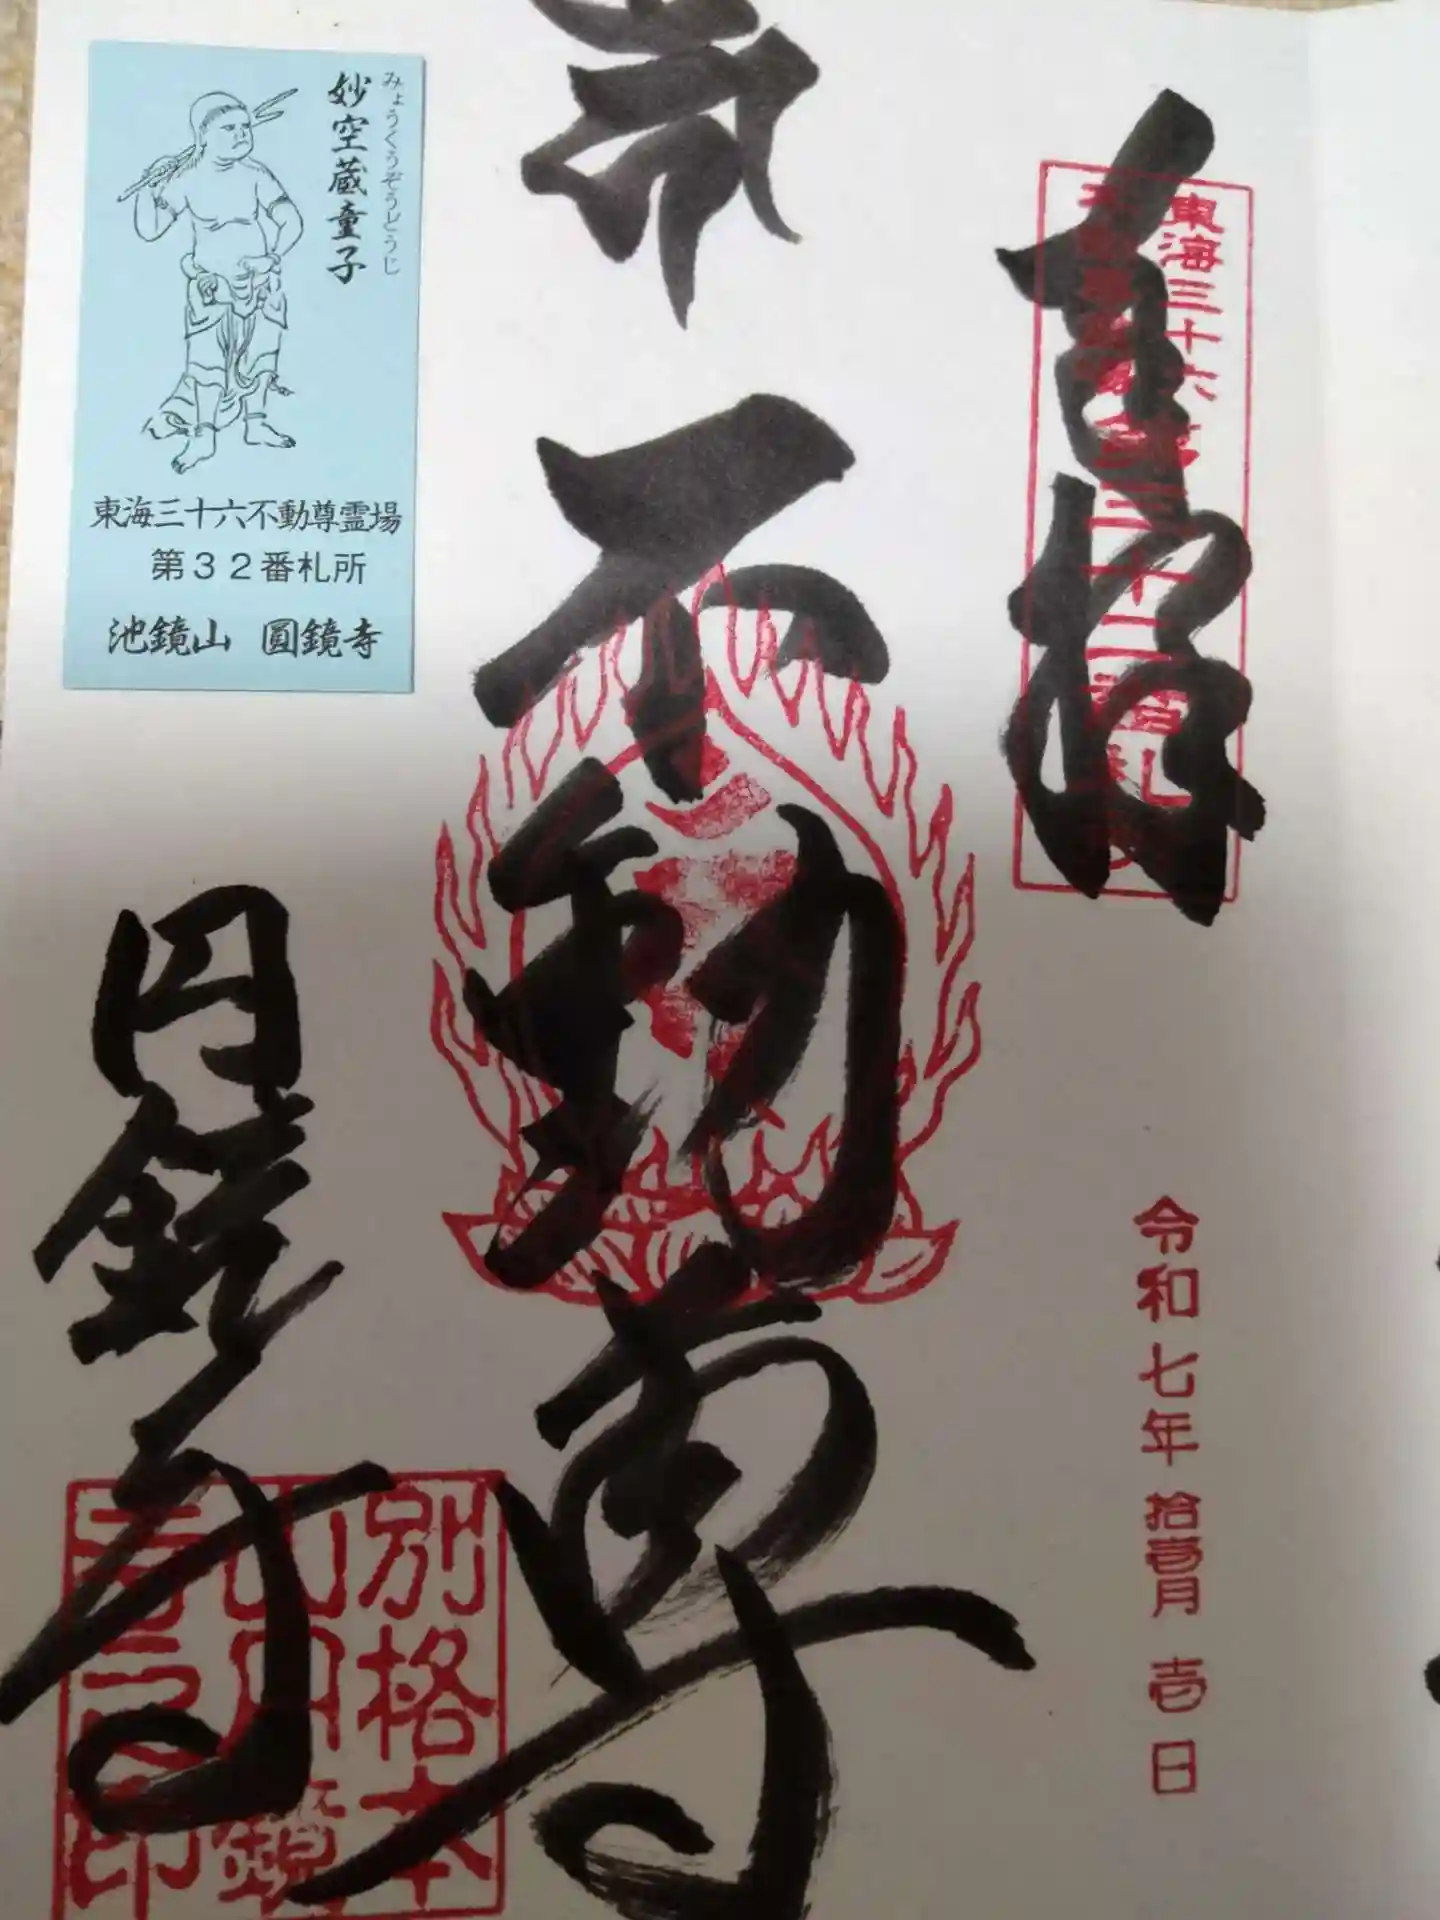 奉拝
東海三十六
不動尊霊場
第三十二番札所
令和七年 拾壱月 壱日
不動尊
円鏡寺
別格本
山円鏡
寺之印
妙空蔵童子
みょうくうぞうどうじ
東海三十六不動尊霊場
第32番札所
池鏡山 圓鏡寺